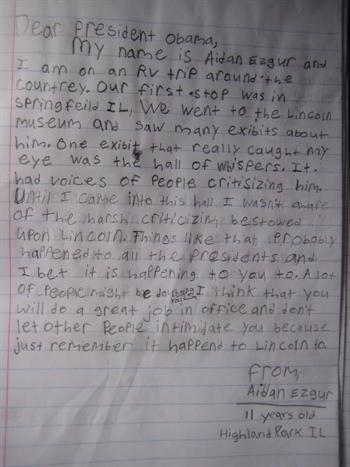 Dear President Obama,
My name is Aidan Ezgur and
I am on an RV trip around the
countrey. Our first stop was in
Springfeild IL, We went to the Lincoln
museum and saw many exibits about
him. One exibit that really caught my
eye was the hall of whispers. It
had voices of people critisizing him.
Until I came into this hall I wasn't aware
of the harsh criticizing bestowed
upon Lincoln. Things like that probably
happened to all the presidents and
I bet it is happening to you to. A lot
of people might be I think that you
will do a great job in office and don't
let other people intimidate you because
just remember it happend to Lincoln to.
From,
Aidan Ezgur
11 years old
Highland Park IL